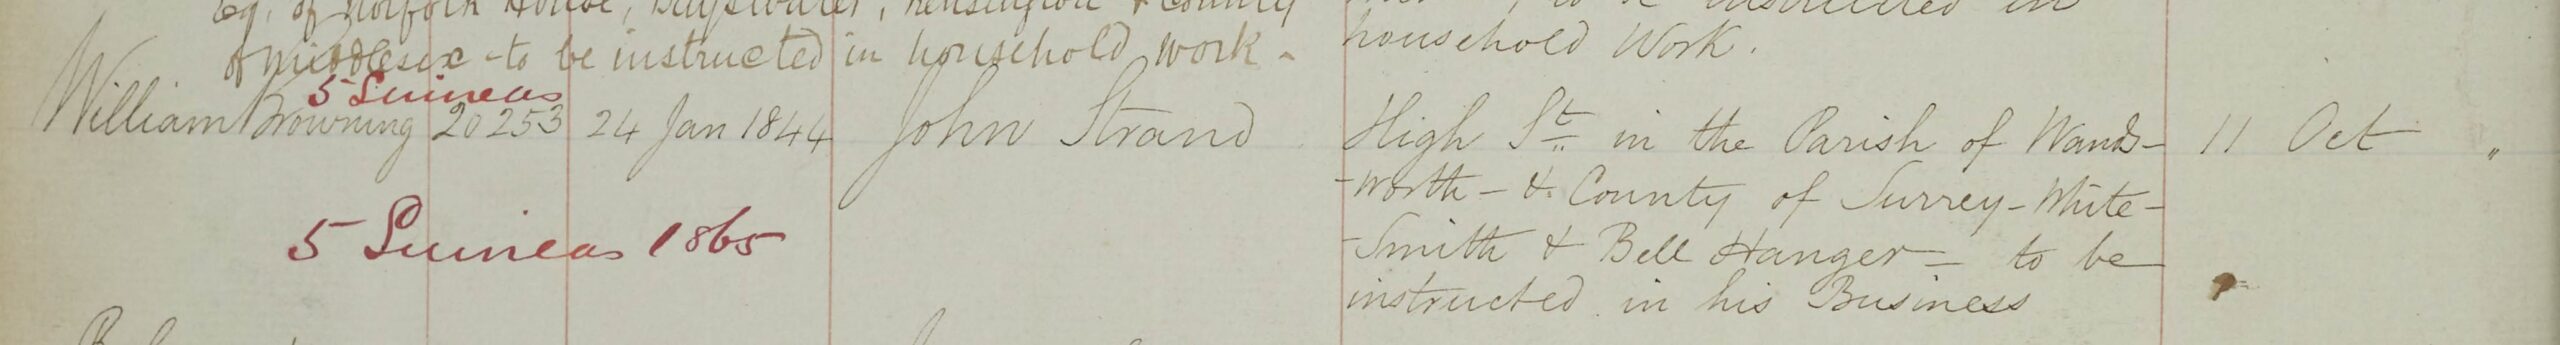 Esq. of Norfolk House, Bayswater, Kensington & County
to be instructed in
of Middlesex - to be instructed in household work -
household Work.
5 Guineas
William Browning 20253 24 Jan 1844 John Strand High St. in the Parish of Wands- 11 Oct "
-worth - & County of Surrey - White-
5 Guineas 1865
-Smith & Bell Hanger - to be
instructed in his Business